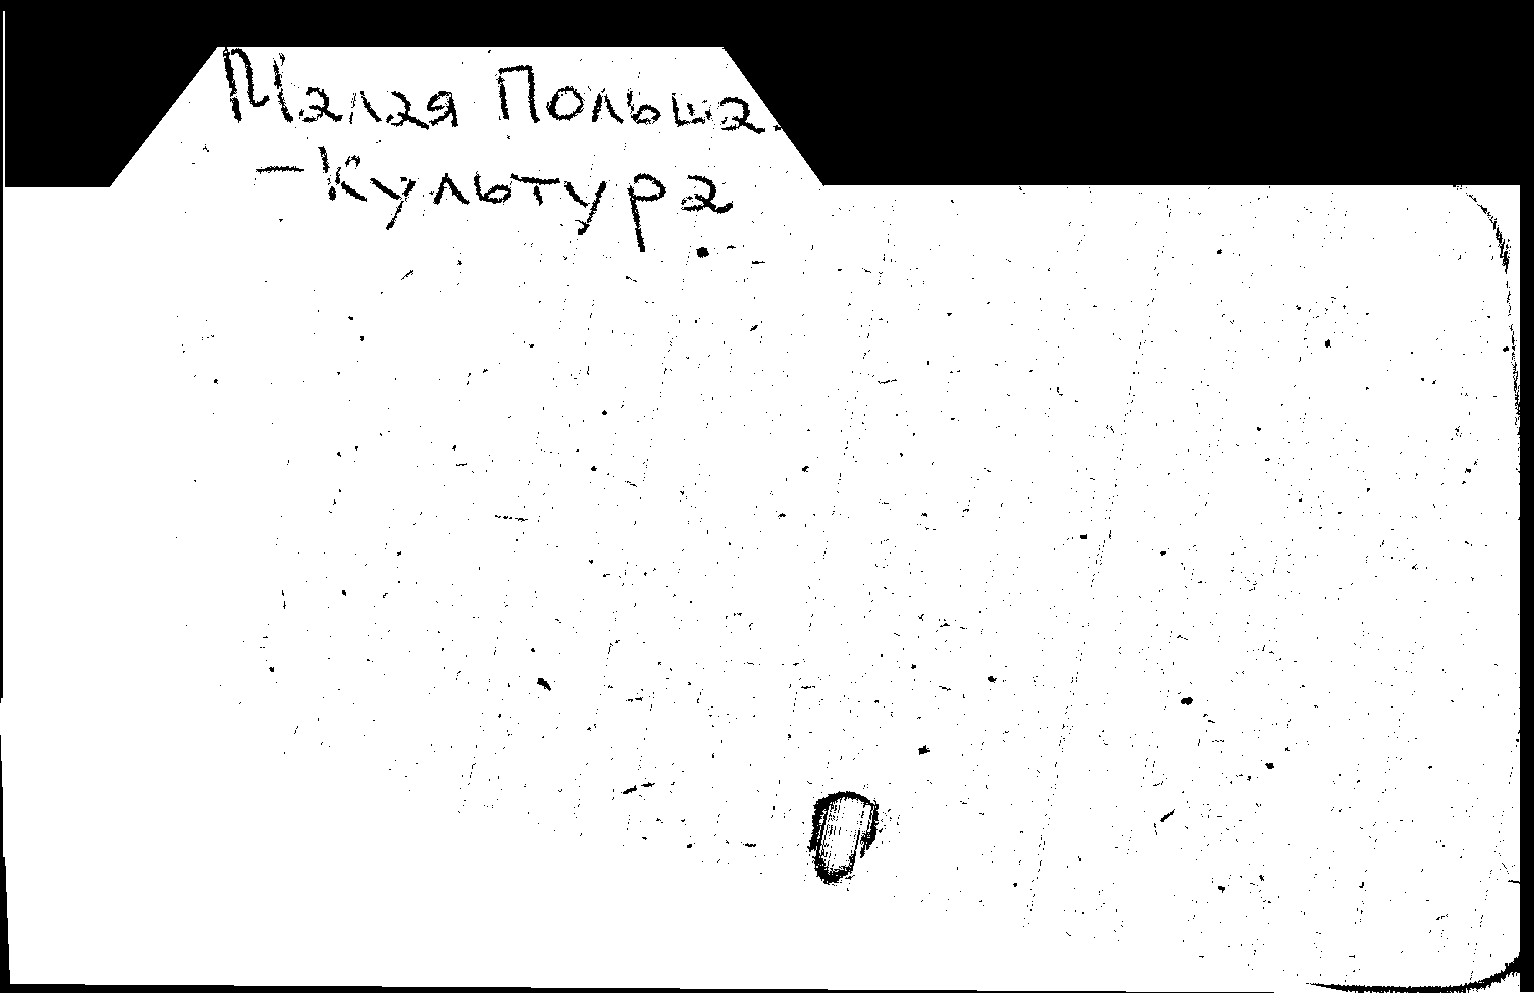 Малая Польша.
-Культура